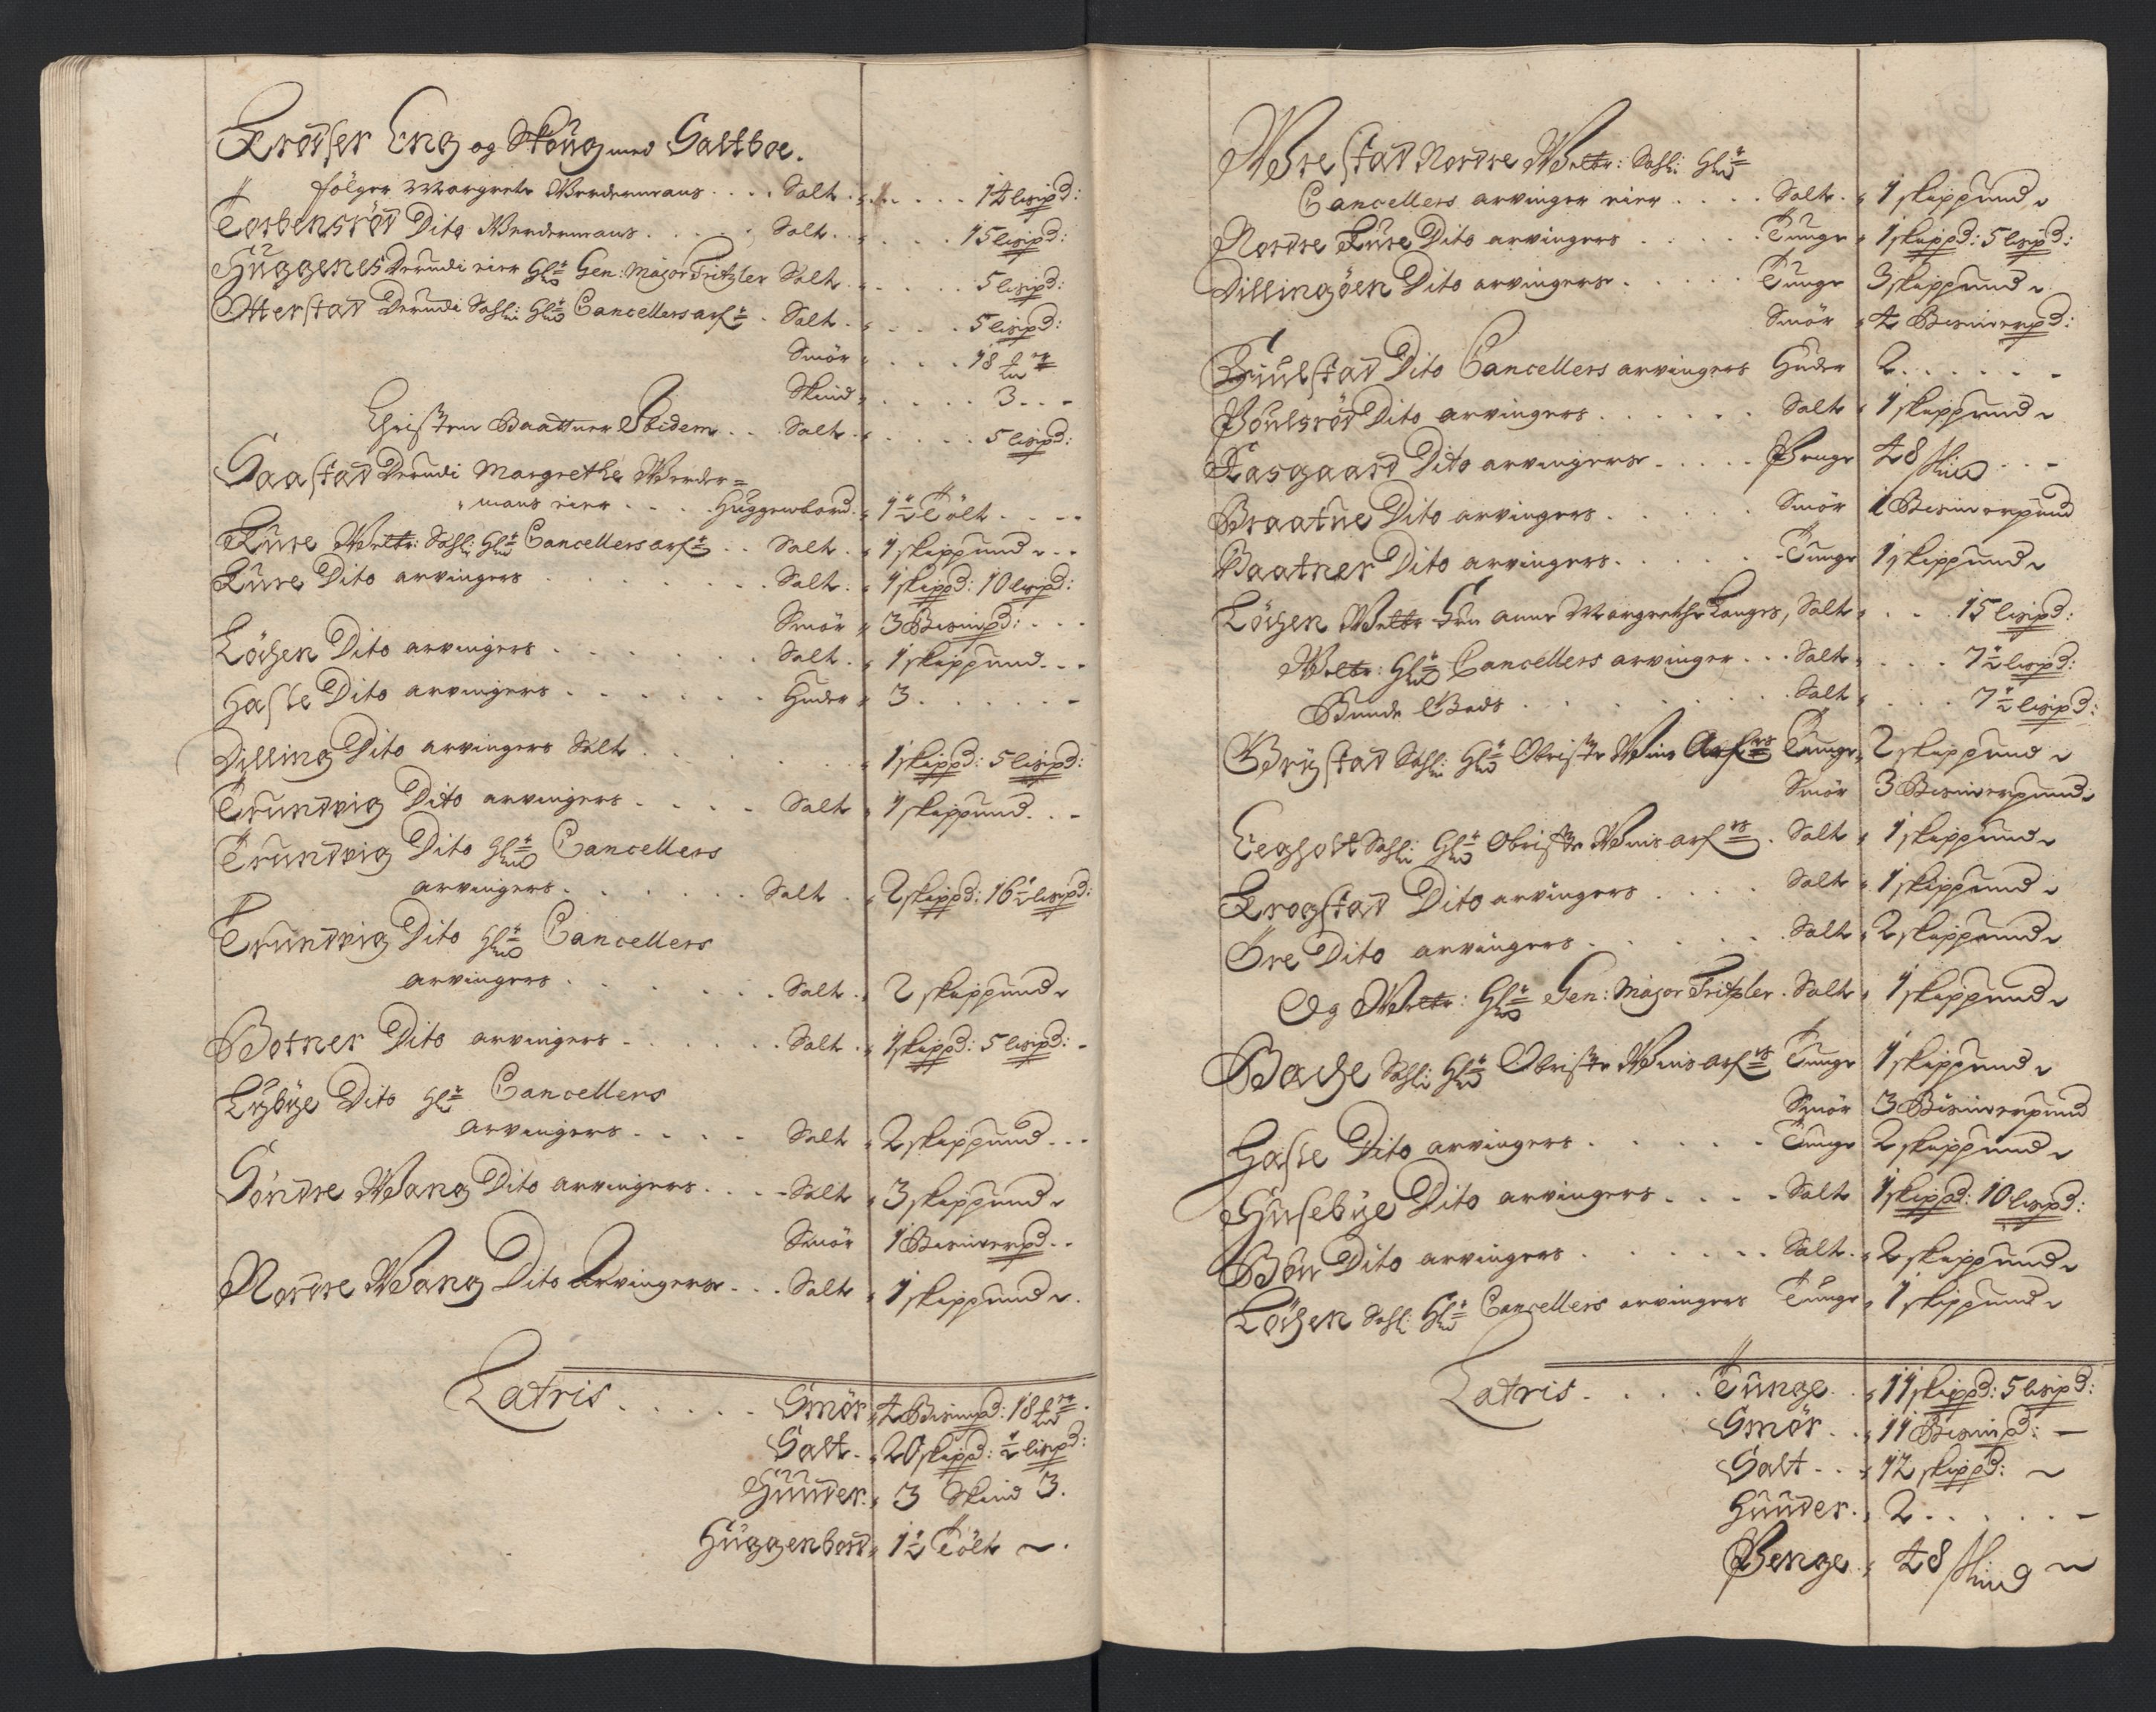 Krosser Eng og Skoug med Saltboe.
følger Margrete Werdermans . . . . Salt . „ . . . . 14 lispd:
Torbensrød Dito Werdermans . . . . . Salt . . „ . . . 15 lispd:
Huggenes Derudi eier Hl: Gen: Major Tritzler Salt . „ . . . . 5 lispd:
Otterstad Derudi Sahl: Hl: Cancellers arf: . Salt . „ . . . 5 lispd:
Smør „ . . . 18
Skind „ . . . . 3 . . -
Christen Baattner Ibidem . . . Salt . „ . . . . 5 lispd:
Saastad Derudi Margrethe Werder=
mans eier . . . . Huggenbord . „ 1½ Tölt . . . .
Kure Welb: Sahl: Hl: Cancellers arf: . . Salt . „ 1 skippund . .
Kure Dito arvingers . . . . . . . Salt . „ 1 skippd: 10 lispd:
Smør „ 3 Bismpd: . . .
Löchen Dito arvingers . . . . . . Salt . „ 1 skippund . . .
Hasle Dito arvingers . . . . . . Huder „ 3 . . . . . . -
Dilling Dito arvingers Salt . . . . . . „ 1 skippd: 5 lispd:
Trundvig Dito arvingers . . . . Salt „ 1 skippund . . -
Trundvig Dito Hl: Cancellers
arvingers . . . . . . . Salt . „ 2 skippd: 16½ lispd:
Trundvig Dito Hl: Cancellers
arvingers . . . . . . . Salt . „ 2 skippund
Botner Dito arvingers . . . . . . Salt . „ 1 skippd: 5 lispd: -
Lybye Dito Hl: Cancellers
arvingers . . . . Salt „ 2 skippund . . .
Söndre Wang Dito arvingers . . . . Salt „ 3 skippund
Smör 1 Bismerpd . .
Nordre Wang Dito Arvingers . . . Salt „ 1 skippund .
Latris . . . . . Smör „ 4 Bismpd: 18
Salt . „ 20 skippd: ½ lispd:
Hüuder . „ 3 Skind 3.
Huggenbord „ 1½ Tölt .
Wrestad Nordre Welb: Sahl: Hl:
Cancellers arvinger eier . . . . Salt . „ 1 skippund
Nordre Kure Dito arvingers . . . . . Tunge „ 1 skippd: 5 lispd:
Dillingöen Dito arvingers . . . . . Tunge 3 skippund
Smör „ 4 Bismerpd:
Kiulstad Dito Cancellers arvingers Huder 2 . . . . . -
Poulsröd Dito arvingers . . . . . . Salt „ 1 skippund
Kasgaard Dito arvingers . . . . . Penge 48 skind . . -
Braatne Dito arvingers . . . . . Smör 1 Bismerpund
Baatner Dito arvingers . . . . . Tunge 1 skippund
Löchen Welb Fru Anne Margrethe Langes, Salt „ . . 15 lispd:
Welb: Hl: Cancellers arvinger . . . Salt „ . . . 7½ lispd:
Bunde Gods . . . . . . . . Salt „ . . . 7½ lispd:
Grystad Sahl: Hl: Obriste Wins Arf: Tunge „ 2 skippund
Smör 3 Bismerpund
Eegholt Sahl: Hl: Obriste Wins arf: . Salt „ 1 skippund
Krogstad Dito arvingers . . . . Salt „ 1 skippund
Öre Dito arvingers . . . . . . Salt „ 2 skippund
Og Welb: Hl: Gen: Major Tritzler . Salt „ 1 skippund
Bache Sahl: Hl: Obriste Wins arf: Tunge 1 skippund
Smör 3 Bismerpund
Hasle Dito arvingers . . . . . . Tunge 2 skippund
Husebye Dito arvingers . . . . Salt 1 skippd: 10 lispd:
Böu Dito arvingers . . . . . . Salt . „ 2 skippund
Löchen Sahl: Hl: Cancellers arvingers Tunge „ 1 skippund
Latris . . . . Tünge . „ 11 skippd: 5 lispd:
Smör . . „ 11 Bismpd: —
Salt . . . „ 12 skippd:
Hüuder . „ 2 . . . . . . -
Penge . „ 48 skind